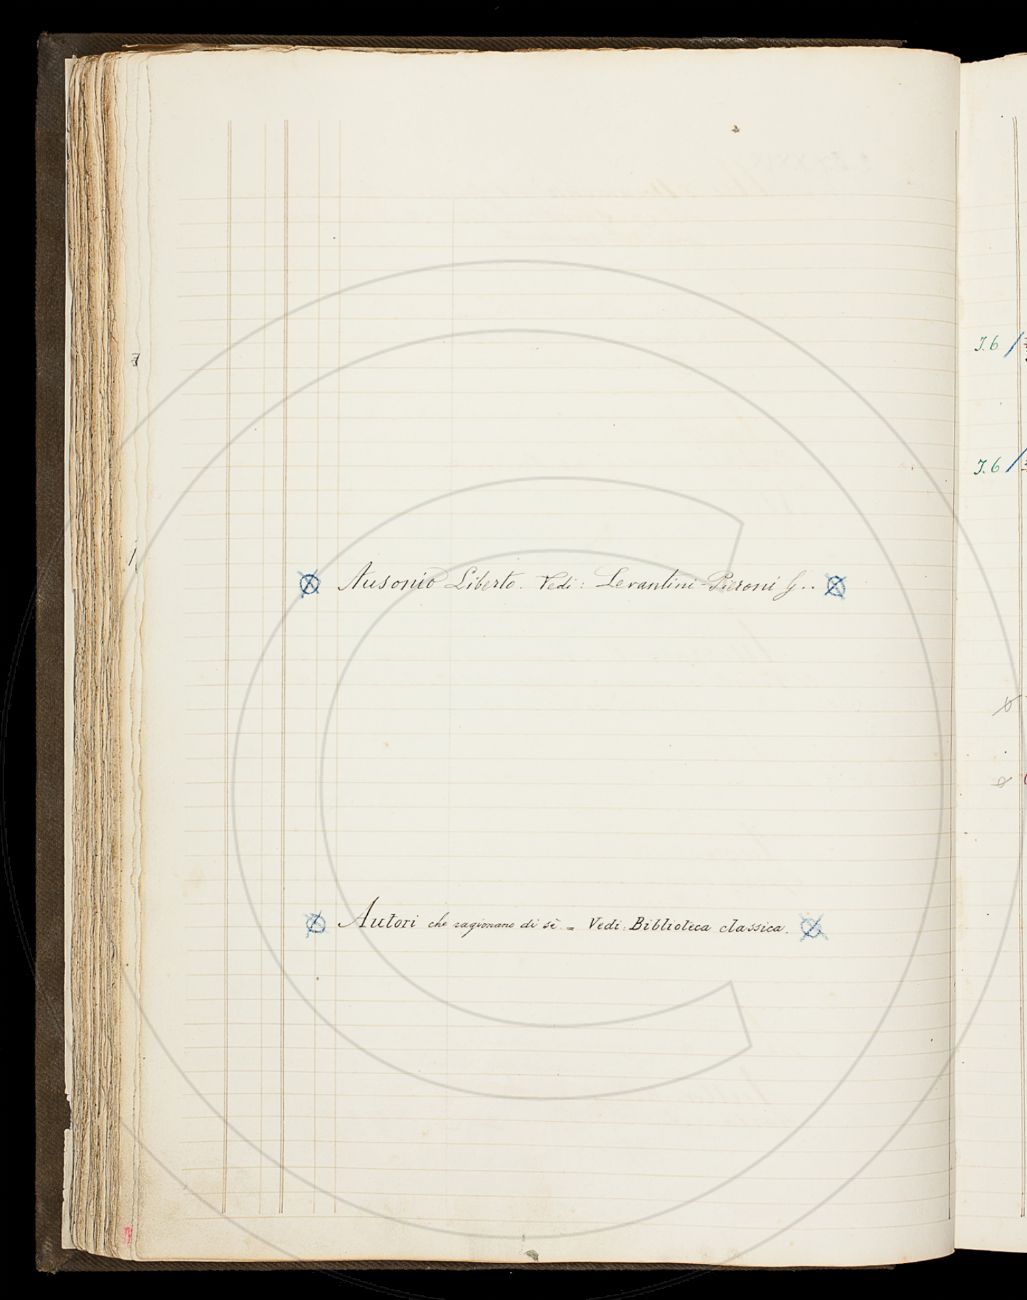 Ausonio Liberto. Vedi: Levantini-Pieroni G..
Autori che ragionano di sè = Vedi: Biblioteca classica.
J.6
J.6